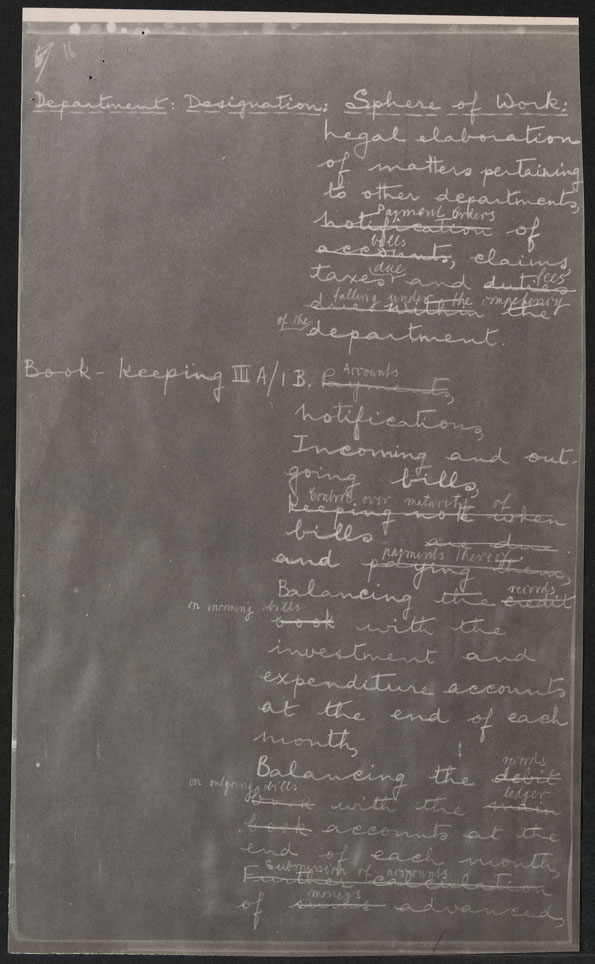 5/ 16
Department: Designation: Sphere of Work:
Legal elaboration
of matters pertaining
to other departments,
Payment Orders
notification of
bills
accounts, claims,
due fees
taxes and duties
falling under the competency
due within the
of the department.
Accounts
Book-keeping III A/1 B. Payments,
notifications,
Incoming and out-
going bills,
Control over maturity of
keeping note when
bills are due
payments thereof
and paying them,
records
Balancing the credit
on incoming bills
book with the
investment and
expenditure accounts
at the end of each
month,
records
Balancing the debit
on outgoing bills ledger
book with the main
book accounts at the
end of each month,
Submission of accounts
Further calculation
moneys
of sums advanced,